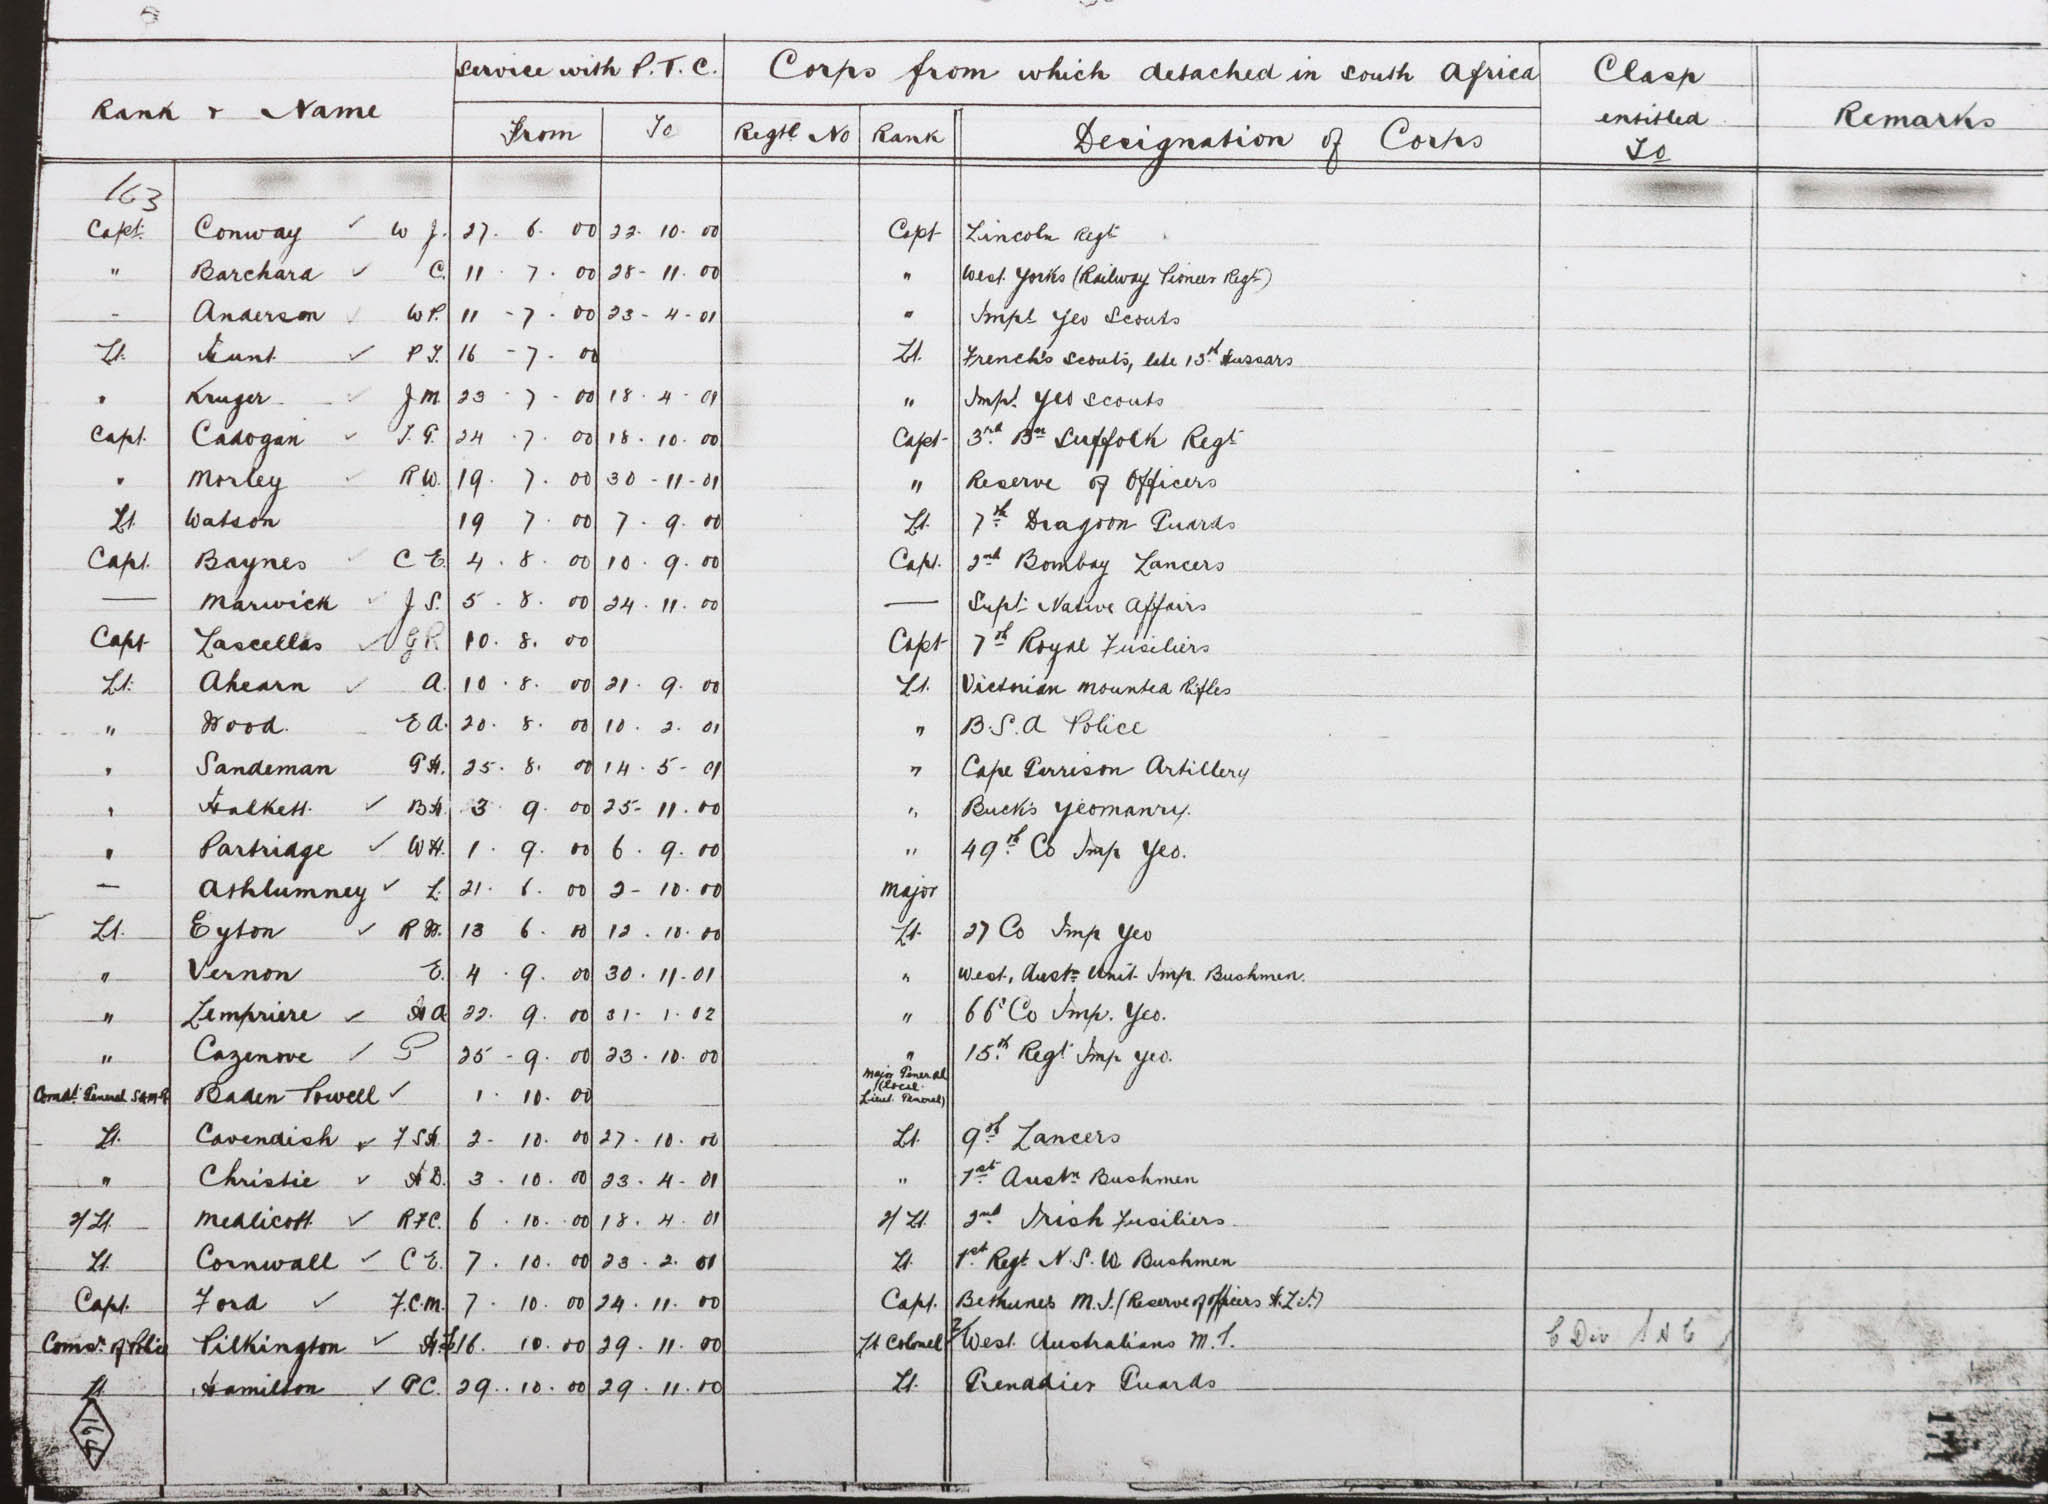 Service with P.T.C. Corps from which detached in South Africa Clasp entitled To Remarks
Rank & Name From To Regtl No Rank Designation of Corps
163
Capt. Conway ✓ W J. 27. 6. 00 22. 10. 00 Capt Lincoln Regt
" Barchard ✓ C. 11. 7. 00 28- 11. 00 " West. Yorks (Railway Pioneer Regt)
- Anderson ✓ W P. 11 -7. 00 23- 4-01 " Impl Yeo Scouts
Lt. Hunt ✓ P.T. 16 -7. 00 Lt. French's Scouts, late 13th Hussars
" Kruger ✓ J M. 23. 7. 00 18. 4. 01 " Impl. Yeo Scouts
Capt. Cadogan ✓ T. G. 24. 7. 00 18. 10. 00 Capt 3rd Bn Suffolk Regt
" Morley ✓ R W. 19. 7. 00 30-11-01 " Reserve of Officers
Lt. Watson 19 7. 00 7. 9. 00 Lt. 7th Dragoon Guards
Capt. Baynes ✓ C E. 4. 8. 00 10. 9. 00 Capt. 2nd Bombay Lancers
— Marwick ✓ J S. 5. 8. 00 24. 11. 00 — Supt Native Affairs
Capt Lascellas ✓ G R 10. 8. 00 Capt 7th Royal Fusiliers
Lt. Ahearn ✓ A. 10. 8. 00 21. 9. 00 Lt. Victorian Mounted Rifles
" Wood. E A. 20. 8. 00 10. 2. 01 " B.S.A Police
" Sandeman G H. 25. 8. 00 14. 5- 01 " Cape Garrison Artillery
" Halkett ✓ B H. 3. 9. 00 25- 11. 00 " Buck's Yeomanry.
" Partridge ✓ W H. 1. 9. 00 6. 9. 00 " 49th Co Imp Yeo.
— Ashlumney ✓ L. 21. 6. 00 2- 10. 00 Major
Lt. Eyton ✓ R H. 13 6. 00 12. 10. 00 Lt. 27 Co Imp Yeo
" Vernon E. 4. 9. 00 30. 11. 01 " West. Austn Unit Imp. Bushmen.
" Lempriere ✓ H A 22. 9. 00 31- 1. 02 " 66 Co Imp. Yeo.
" Cazenove ✓ G 25- 9. 00 23. 10. 00 " 15th Regt Imp Yeo.
Comdt. General S.A.M.P. Baden Powell ✓ 1. 10. 00 Major General (Local Lieut. General)
Lt. Cavendish ✓ F S H. 2- 10. 00 27. 10. 00 Lt. 9th Lancers
" Christie ✓ H D. 3. 10. 00 23. 4- 01 " 1st Austn Bushmen
2/Lt. Medlicott ✓ R F C. 6. 10. 00 18. 4. 01 2/Lt. 2nd Irish Fusiliers
Lt. Cornwall ✓ C E. 7. 10. 00 23. 2. 01 Lt. 1st Regt N. S. W Bushmen
Capt. Ford ✓ F.C.M. 7. 10. 00 24. 11. 00 Capt. Bethunes M.I. (Reserve of Officers H.L.I.)
Comsr. of Police Pilkington ✓ 16. 10. 00 29. 11. 00 Lt Colonel West Australians M.I. C Div
Lt Hamilton ✓ G C. 29. 10. 00 29. 11. 00 Lt. Grenadier Guards
164
171